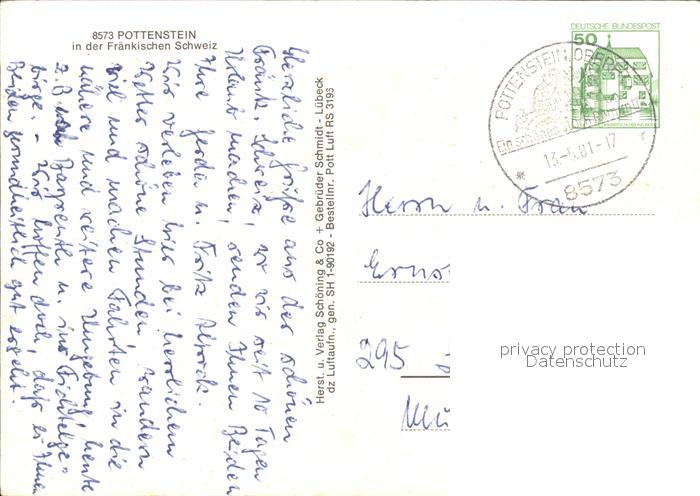 8573 POTTENSTEIN
in der Fränkischen Schweiz
Herzliche Grüße aus der schönen
Fränk. Schweiz, wo wir seit 10 Tagen
Urlaub machen, senden Ihnen Beiden
Ihre Gerda u. Fritz
Wir verleben hier bei herrlichem
Wetter schöne Stunden, wandern
viel und machen Fahrten in die
nähere und weitere Umgebung, heute
z.B. nach Bayreuth u. ins Fichtelge-
birge. - Wir hoffen doch, daß es Ihnen
Beiden gesundheitlich gut ergeht.
Herst. u. Verlag Schöning & Co + Gebrüder Schmidt - Lübeck
dz Luftaufn., gen. SH 1-90192 - Bestellnr. Pott Luft RS 3193
DEUTSCHE BUNDESPOST
50
POTTENSTEIN, OBERFR
13.-5.81-17
8573
Herrn u. Frau
Erns
295
privacy protection
Datenschutz